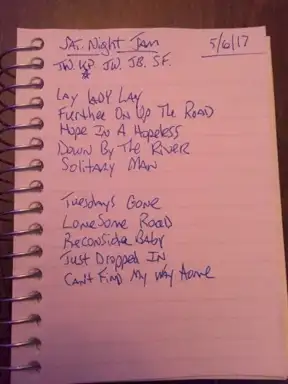 SAT. Night Jam 5/6/17
TW. KP. JW. JB. SF.
LAY LADY LAY
FURTHER ON UP THE ROAD
HOPE IN A HOPELESS
DOWN BY THE RIVER
SOLITARY MAN
TUESDAYS GONE
LONESOME ROAD
RECONSIDER BABY
JUST DROPPED IN
CANT FIND MY WAY HOME